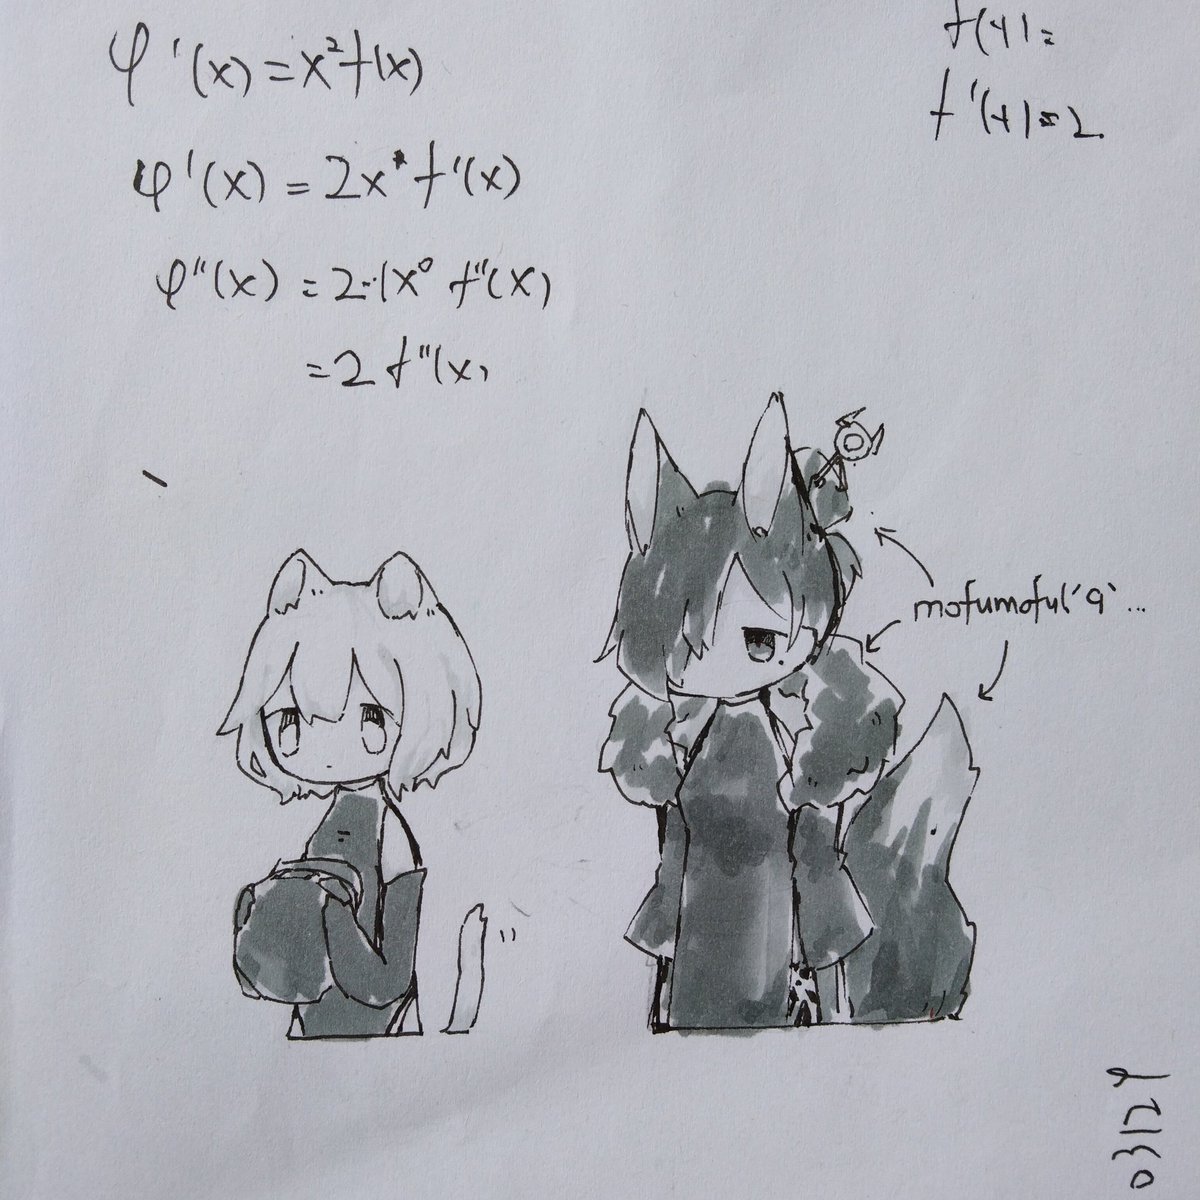 φ'(x) = x²f(x)
φ'(x) = 2x• f'(x)
φ"(x) = 2·1x⁰ f"(x)
= 2 f"(x)
f(4)=
f'(4)=2
mofumofu('q'...